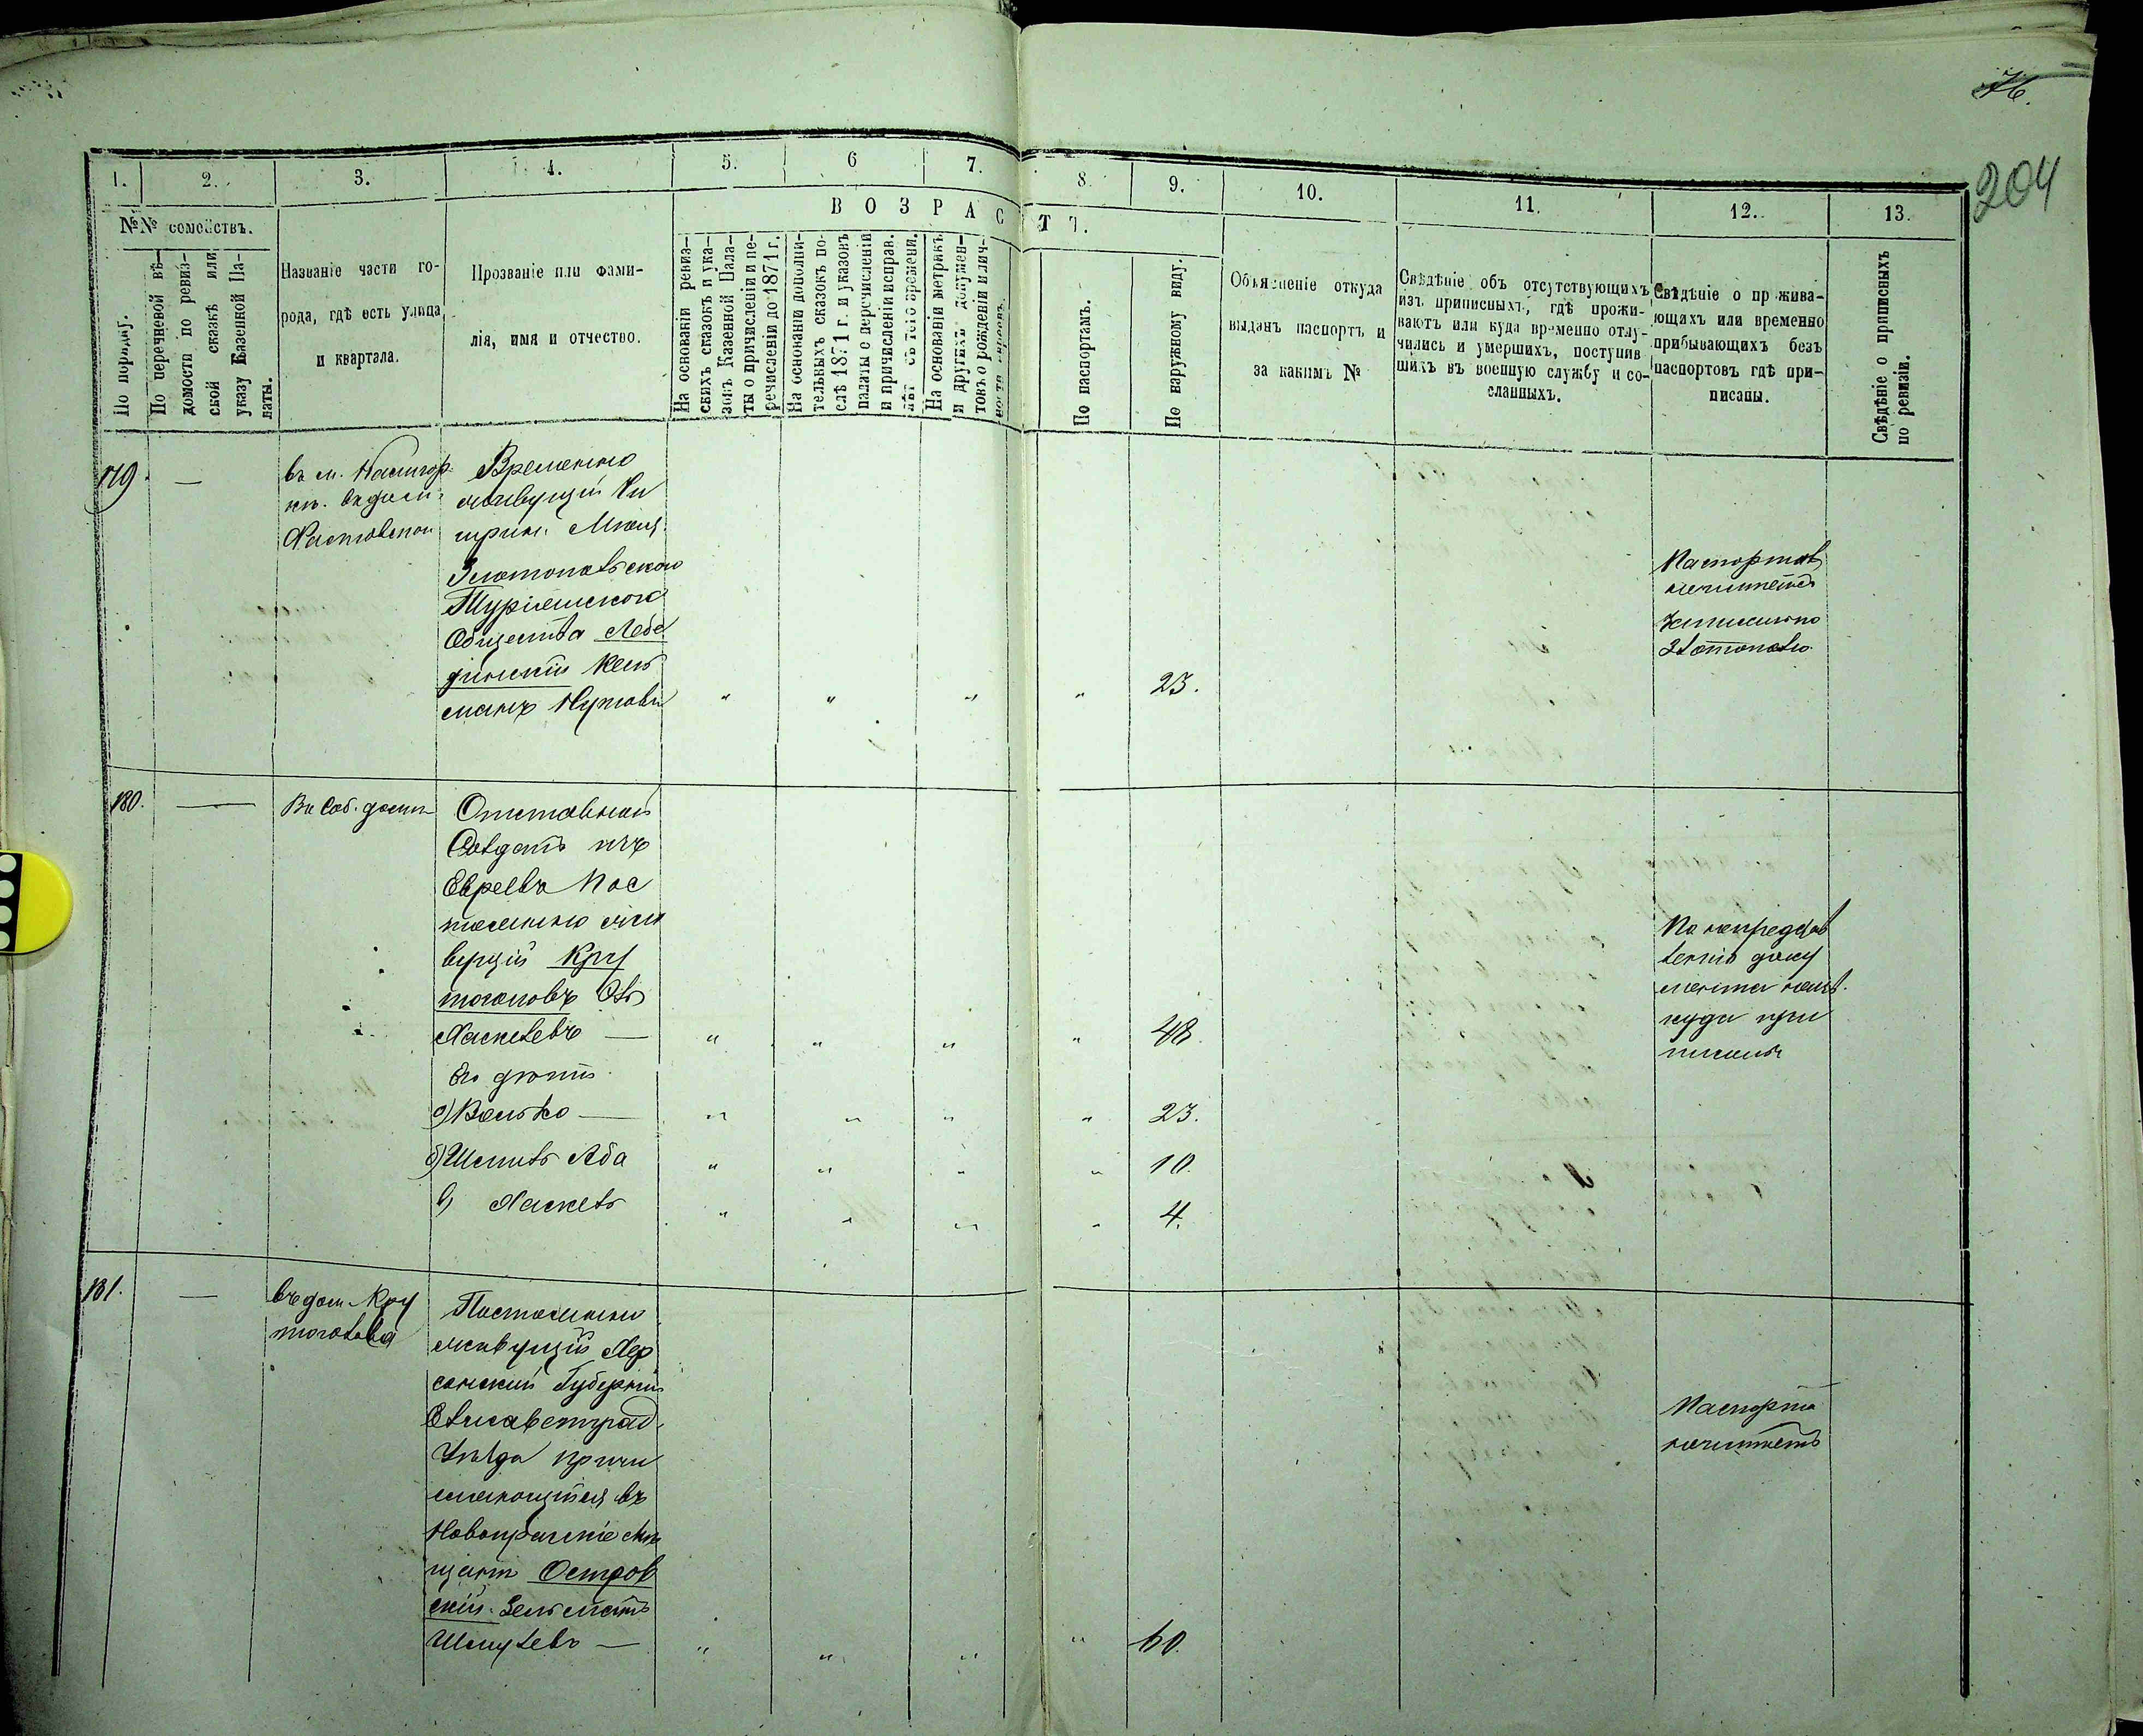 76.
204
1.
2.
3.
4.
5.
6
7.
8.
9.
10.
11.
12.
13.
№№ семействъ.
ВОЗРАСТЪ.
По порядку.
По перечневой вѣ-
домости по ревиз-
ской сказкѣ или
указу Казенной Па-
латы.
Названіе части го-
рода, гдѣ есть улица
и квартала.
Прозваніе или фами-
лія, имя и отчество.
На основаніи ревиз-
скихъ сказокъ и ука-
зовъ Казенной Пала-
ты о причисленіи и пе-
речисленіи до 1871 г.
На основаніи дополни-
тельныхъ сказокъ по-
слѣ 1871 г. и указовъ
палаты о перечисленіи
и причисленіи исправ.
лѣт. съ того времени.
На основаніи метрикъ
и другихъ докумен-
товъ о рожденіи и лич-
По паспортамъ.
По наружному виду.
Объясненіе откуда
выданъ паспортъ и
за какимъ №
Свѣдѣніе объ отсутствующихъ
изъ приписныхъ, гдѣ прожи-
ваютъ или куда временно отлу-
чились и умершихъ, поступив
шихъ въ военную службу и со-
сланныхъ.
Свѣдѣніе о прожива-
ющихъ или временно
прибывающихъ безъ
паспортовъ гдѣ при-
писаны.
Свѣдѣніе о приписныхъ
по ревизіи.
179. —
въ м.
Временно
живущій
Златопольского
Общества Лебе
динскій Кель
манъ
" " " " 23.
Паспорта
неимѣетъ
Златополю
180. — Въ соб. домѣ
Отставной
Солдатъ изъ
Евреевъ Пос
тоянно жи
вущій Кру
тоголовъ
Хаскелевъ — " " " " 48
Его дѣти
а) Волько — " " " " 23.
б) Шмиль Аба " " " " 10.
в) Хаскель " " " " 4.
По непредстав
ленію доку
мента
куда при
писанъ
181. — въ дом. Кру
тоголова
Постоянно
живущій Хер
сонской Губерніи
Елисаветград.
Уѣзда причи
сляющійся въ
Новопражскіе Мѣ
щане Остров
скій Зельманъ
Шмулевъ — " " " " 60.
Паспорта
неимѣетъ